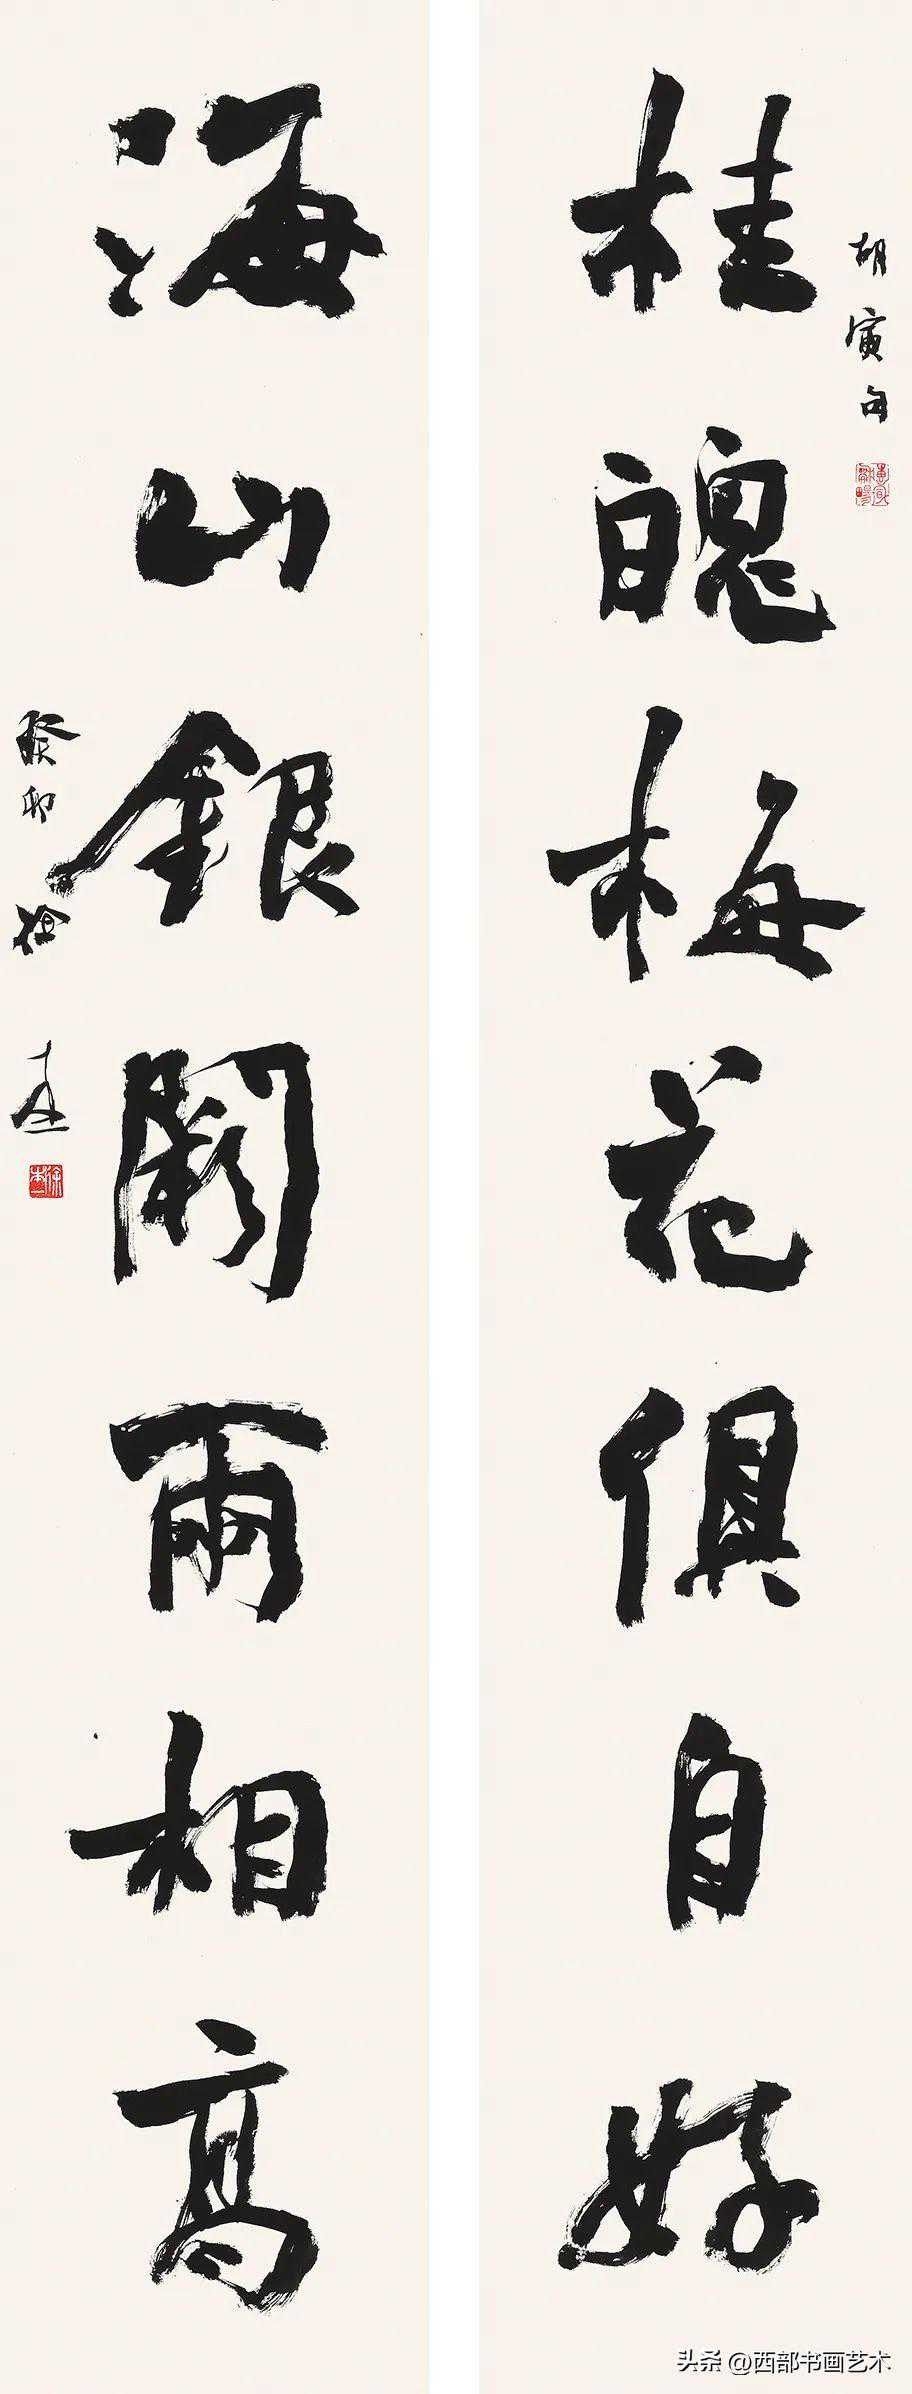 胡寅句
桂魄梅花俱自好
海山銀闕兩相高
癸卯徐
头条 @西部书画艺术